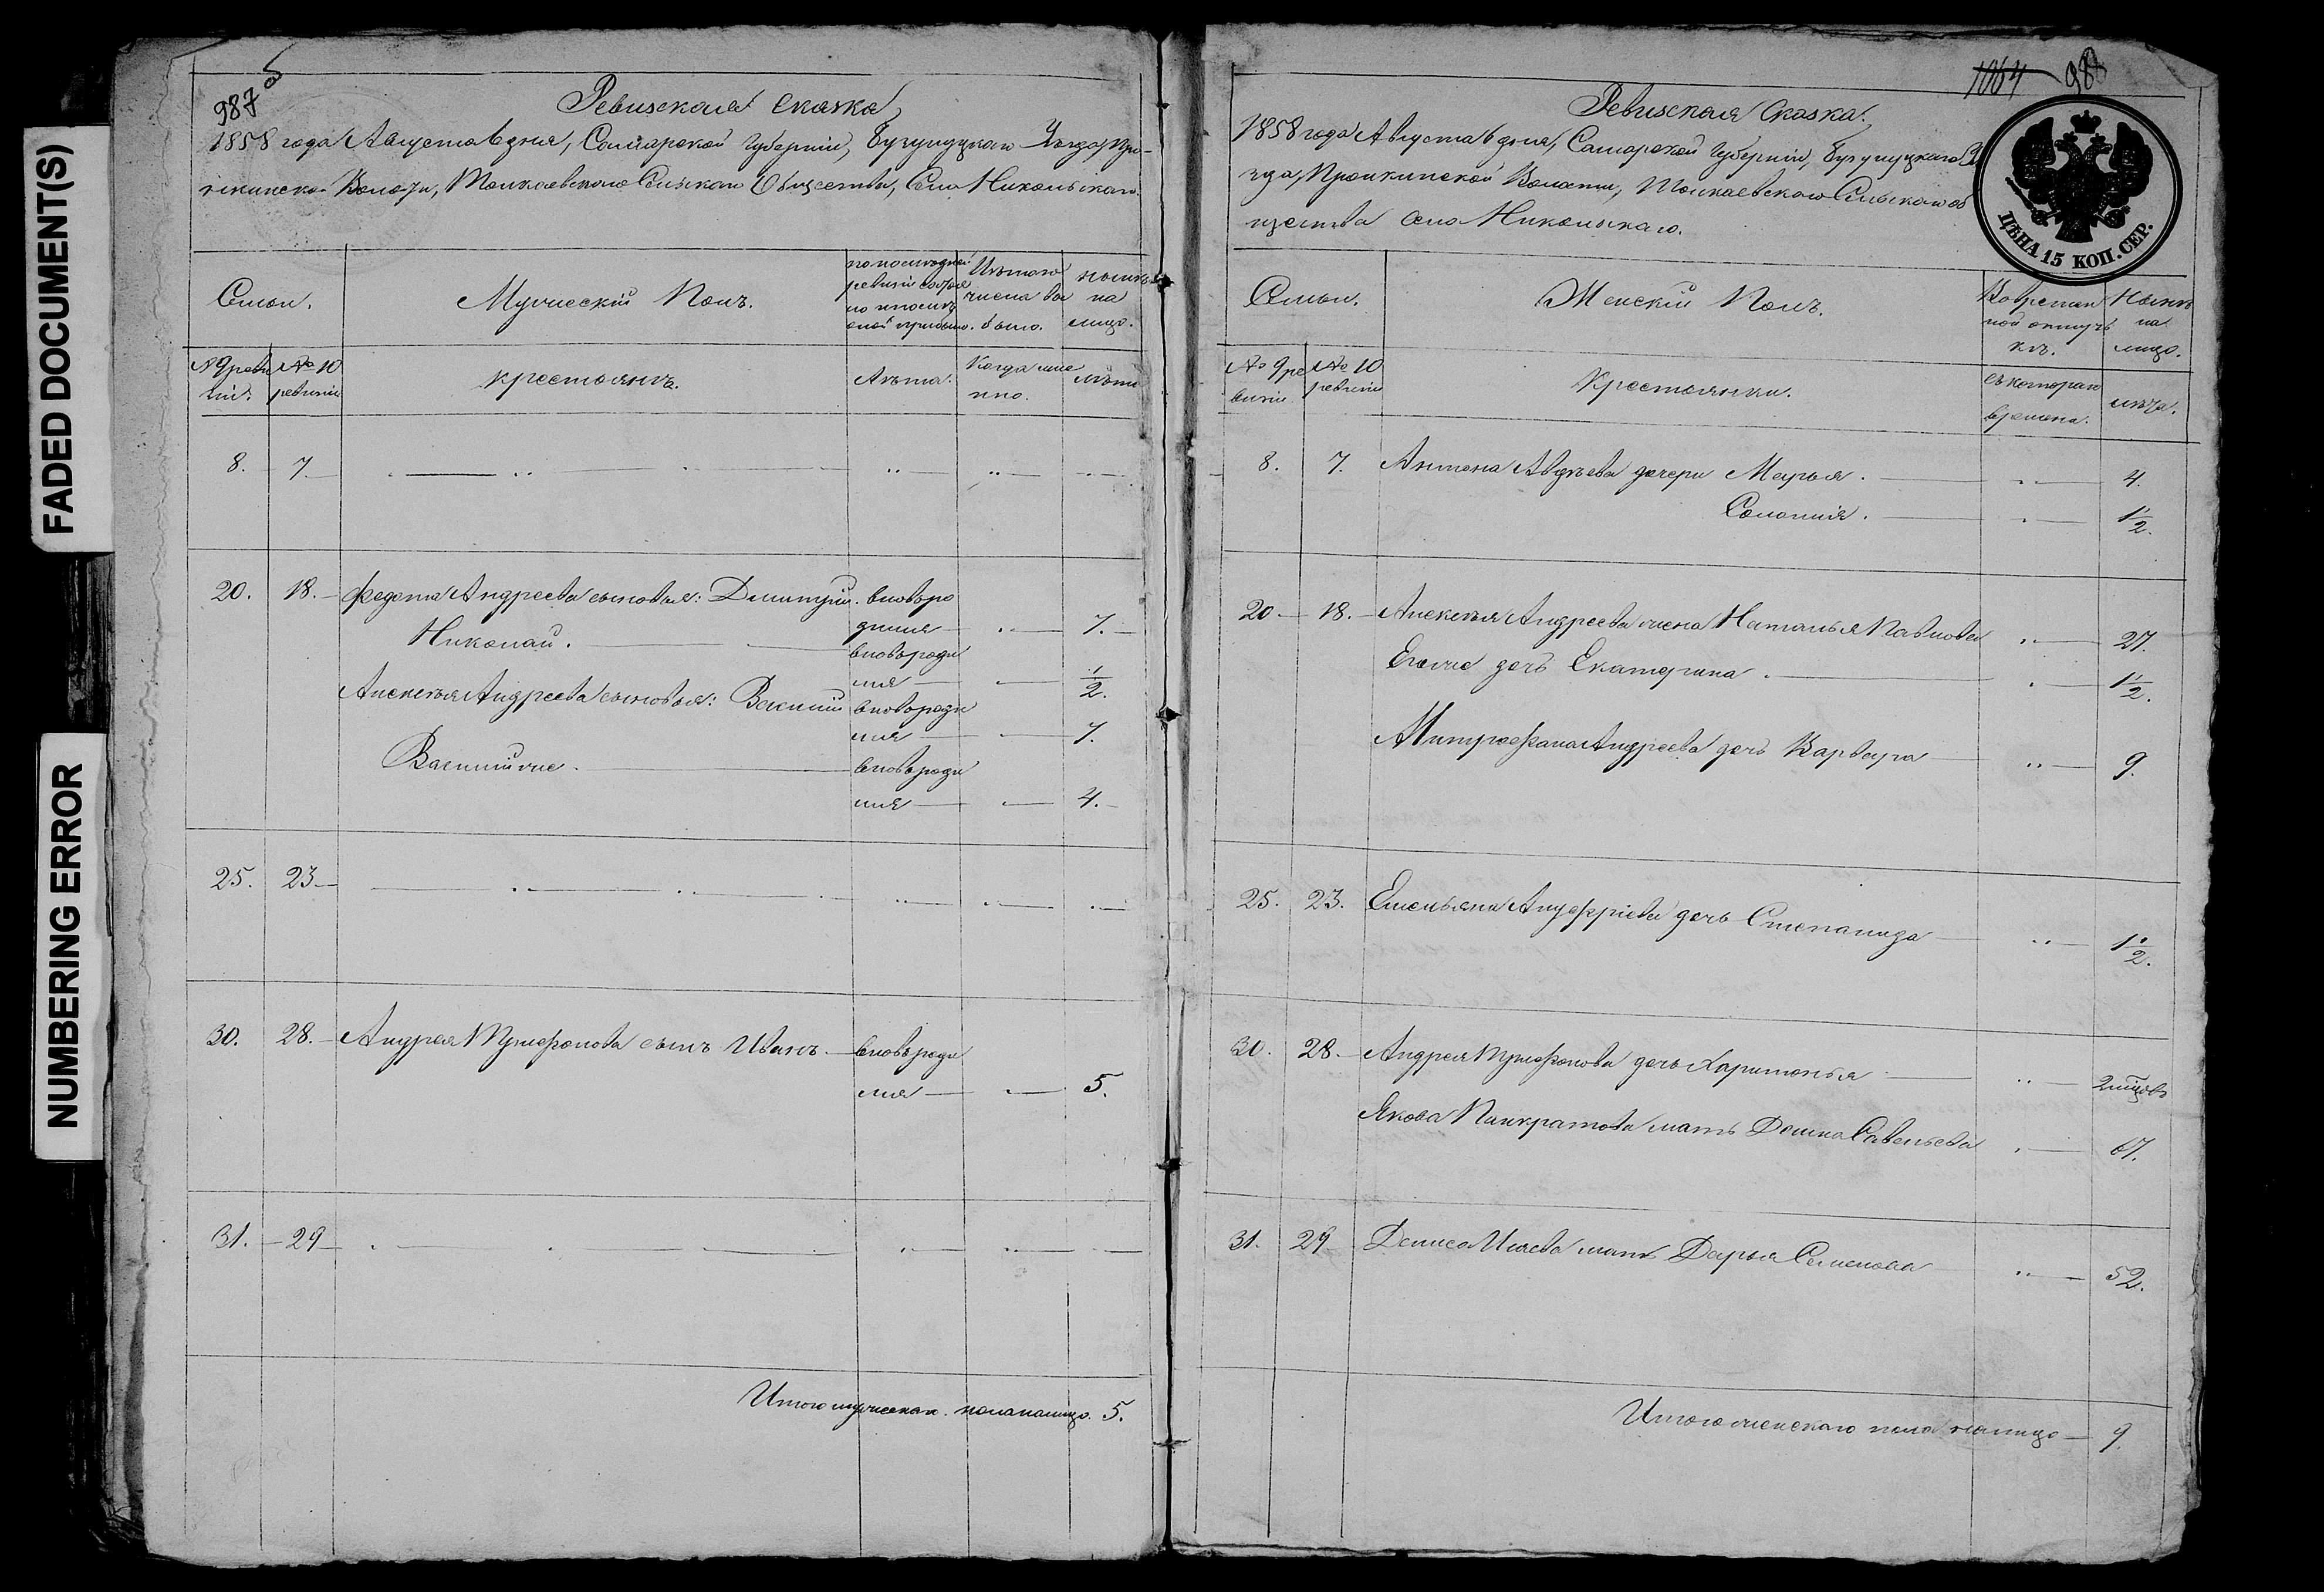 FADED DOCUMENT(S)
NUMBERING ERROR
987
Ревизская Сказка
1858 года Августа 6 дня, Самарской Губерніи, Бугурусланскаго Уѣзда, Про-
нкинской Волости, Толкаевскаго Сельскаго Общества, Села Никольскаго.
Семьи.
Мужескій Полъ.
по послѣдней
ревизіи состоя
ло и послѣ
оной прибыло.
Изъ того
числа вы
было.
нынѣ
на
лицо.
№ 9 реви
зіи.
№ 10
ревизіи
крестьянъ.
Лѣта.
Когда име
нно.
лѣта
8. 7.
20. 18. Федота Андреева сыновья: Димитрій. вновь ро
дился 7.
Николай. вновь роди
лся 1/2.
Алексѣя Андреева сыновья: Василій вновь роди
лся 7.
Василій же. вновь роди
лся 4.
25. 23
30. 28. Андрея сынъ Иванъ. вновь роди
лся 5.
31. 29
Итого мужескаго пола налицо. 5.
1064 988
Ревизская Сказка.
1858 года Августа 6 дня, Самарской Губерніи, У
ѣзда, Пронкинской Волости, Толкаевскаго Сельскаго об
щества Села Никольскаго.
ЦѢНА 15 КОП. СЕР.
Семьи.
Женскій Полъ.
Во времен
ной отлуч
кѣ.
Нынѣ
на
лицо.
№ 9 ре
визіи
№ 10
ревизіи
Крестьянки.
съ котораго
времени.
лѣта.
8. 7. Антона Авдѣева дочери Марья. 4.
Соломія. 1 1/2.
20. 18. Алексѣя Андреева жена Наталья Павлова 27.
Егоже дочь Екатерина. 1 1/2.
Митрофана Андреева дочь Варвара 9.
25. 23. Емельяна дочь Степанида 1 1/2.
30. 28. Андрея дочь Харитонья 2
Якова Панкратова мать Домна Савельева 67.
31. 29 Дениса мать Дарья Семенова 52.
Итого женскаго пола налицо 9.